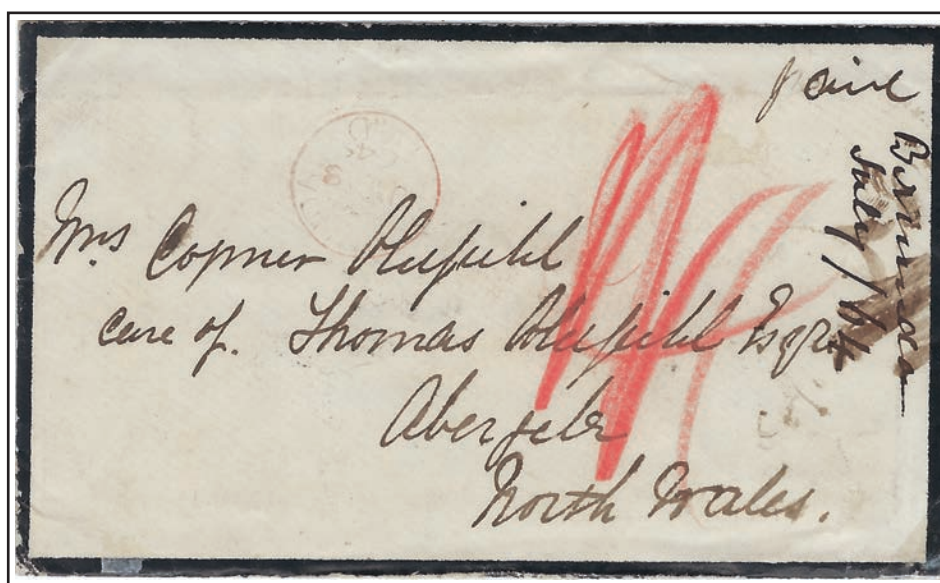 paid
Bermuda
July/64
Mrs Copner Oldfield
care of. Thomas Oldfield Esqre
Abergele
North Wales.